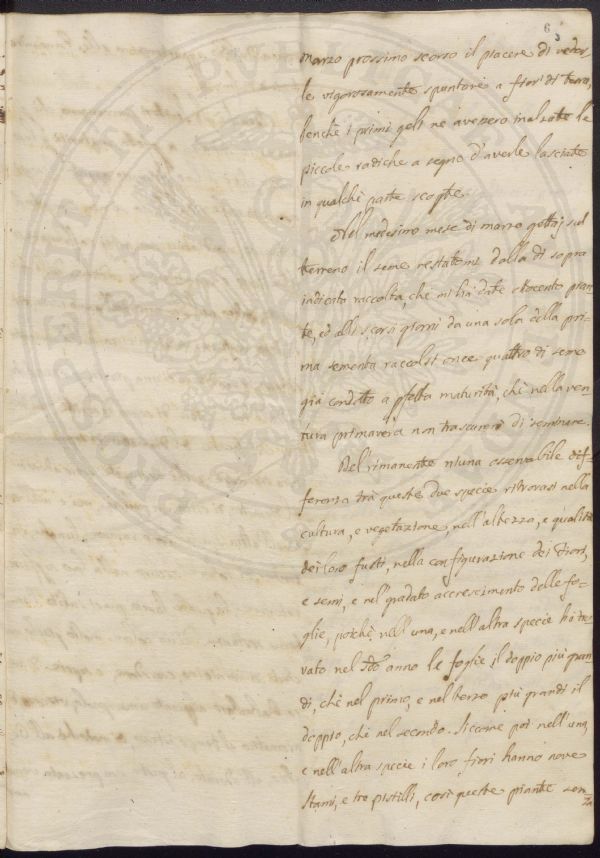 6
marzo prossimo scorso il piacere di veder
le vigorosamente spuntare a fior di terra,
benchè i primi geli ne avessero inalzate le
piccole radiche a segno d'averle lasciate
in qualche parte scoperte.
Nel medesimo mese di marzo gettaj sul
terreno il seme restatomi dalla di sopra
indicata raccolta, che mi hà date ottocento pian-
te, ed alli scorsi giorni da una sola della pri-
ma sementa raccolsi once quattro di seme
già condotto a pfetta maturità, chè nella ven-
tura primavera non trascurerò di seminare.
Del rimanente niuna osservabile dif-
ferenza trà queste due specie ritrovasi nella
cultura, e vegetazione, nell'altezza, e qualità
dei loro fusti, nella configurazione dei Fiori,
e semi, e nel gradato accrescimento delle fo-
glie, poichè nell'una, e nell'altra specie hò tro-
vato nel sdo anno le foglie il doppio più gran-
di, che nel primo, e nel terzo più grandi il
doppio, che nel secondo. Siccome poi nell'una,
e nell'altra specie i loro fiori hanno nove
stami, e tre pistilli, così queste piante sen-
za